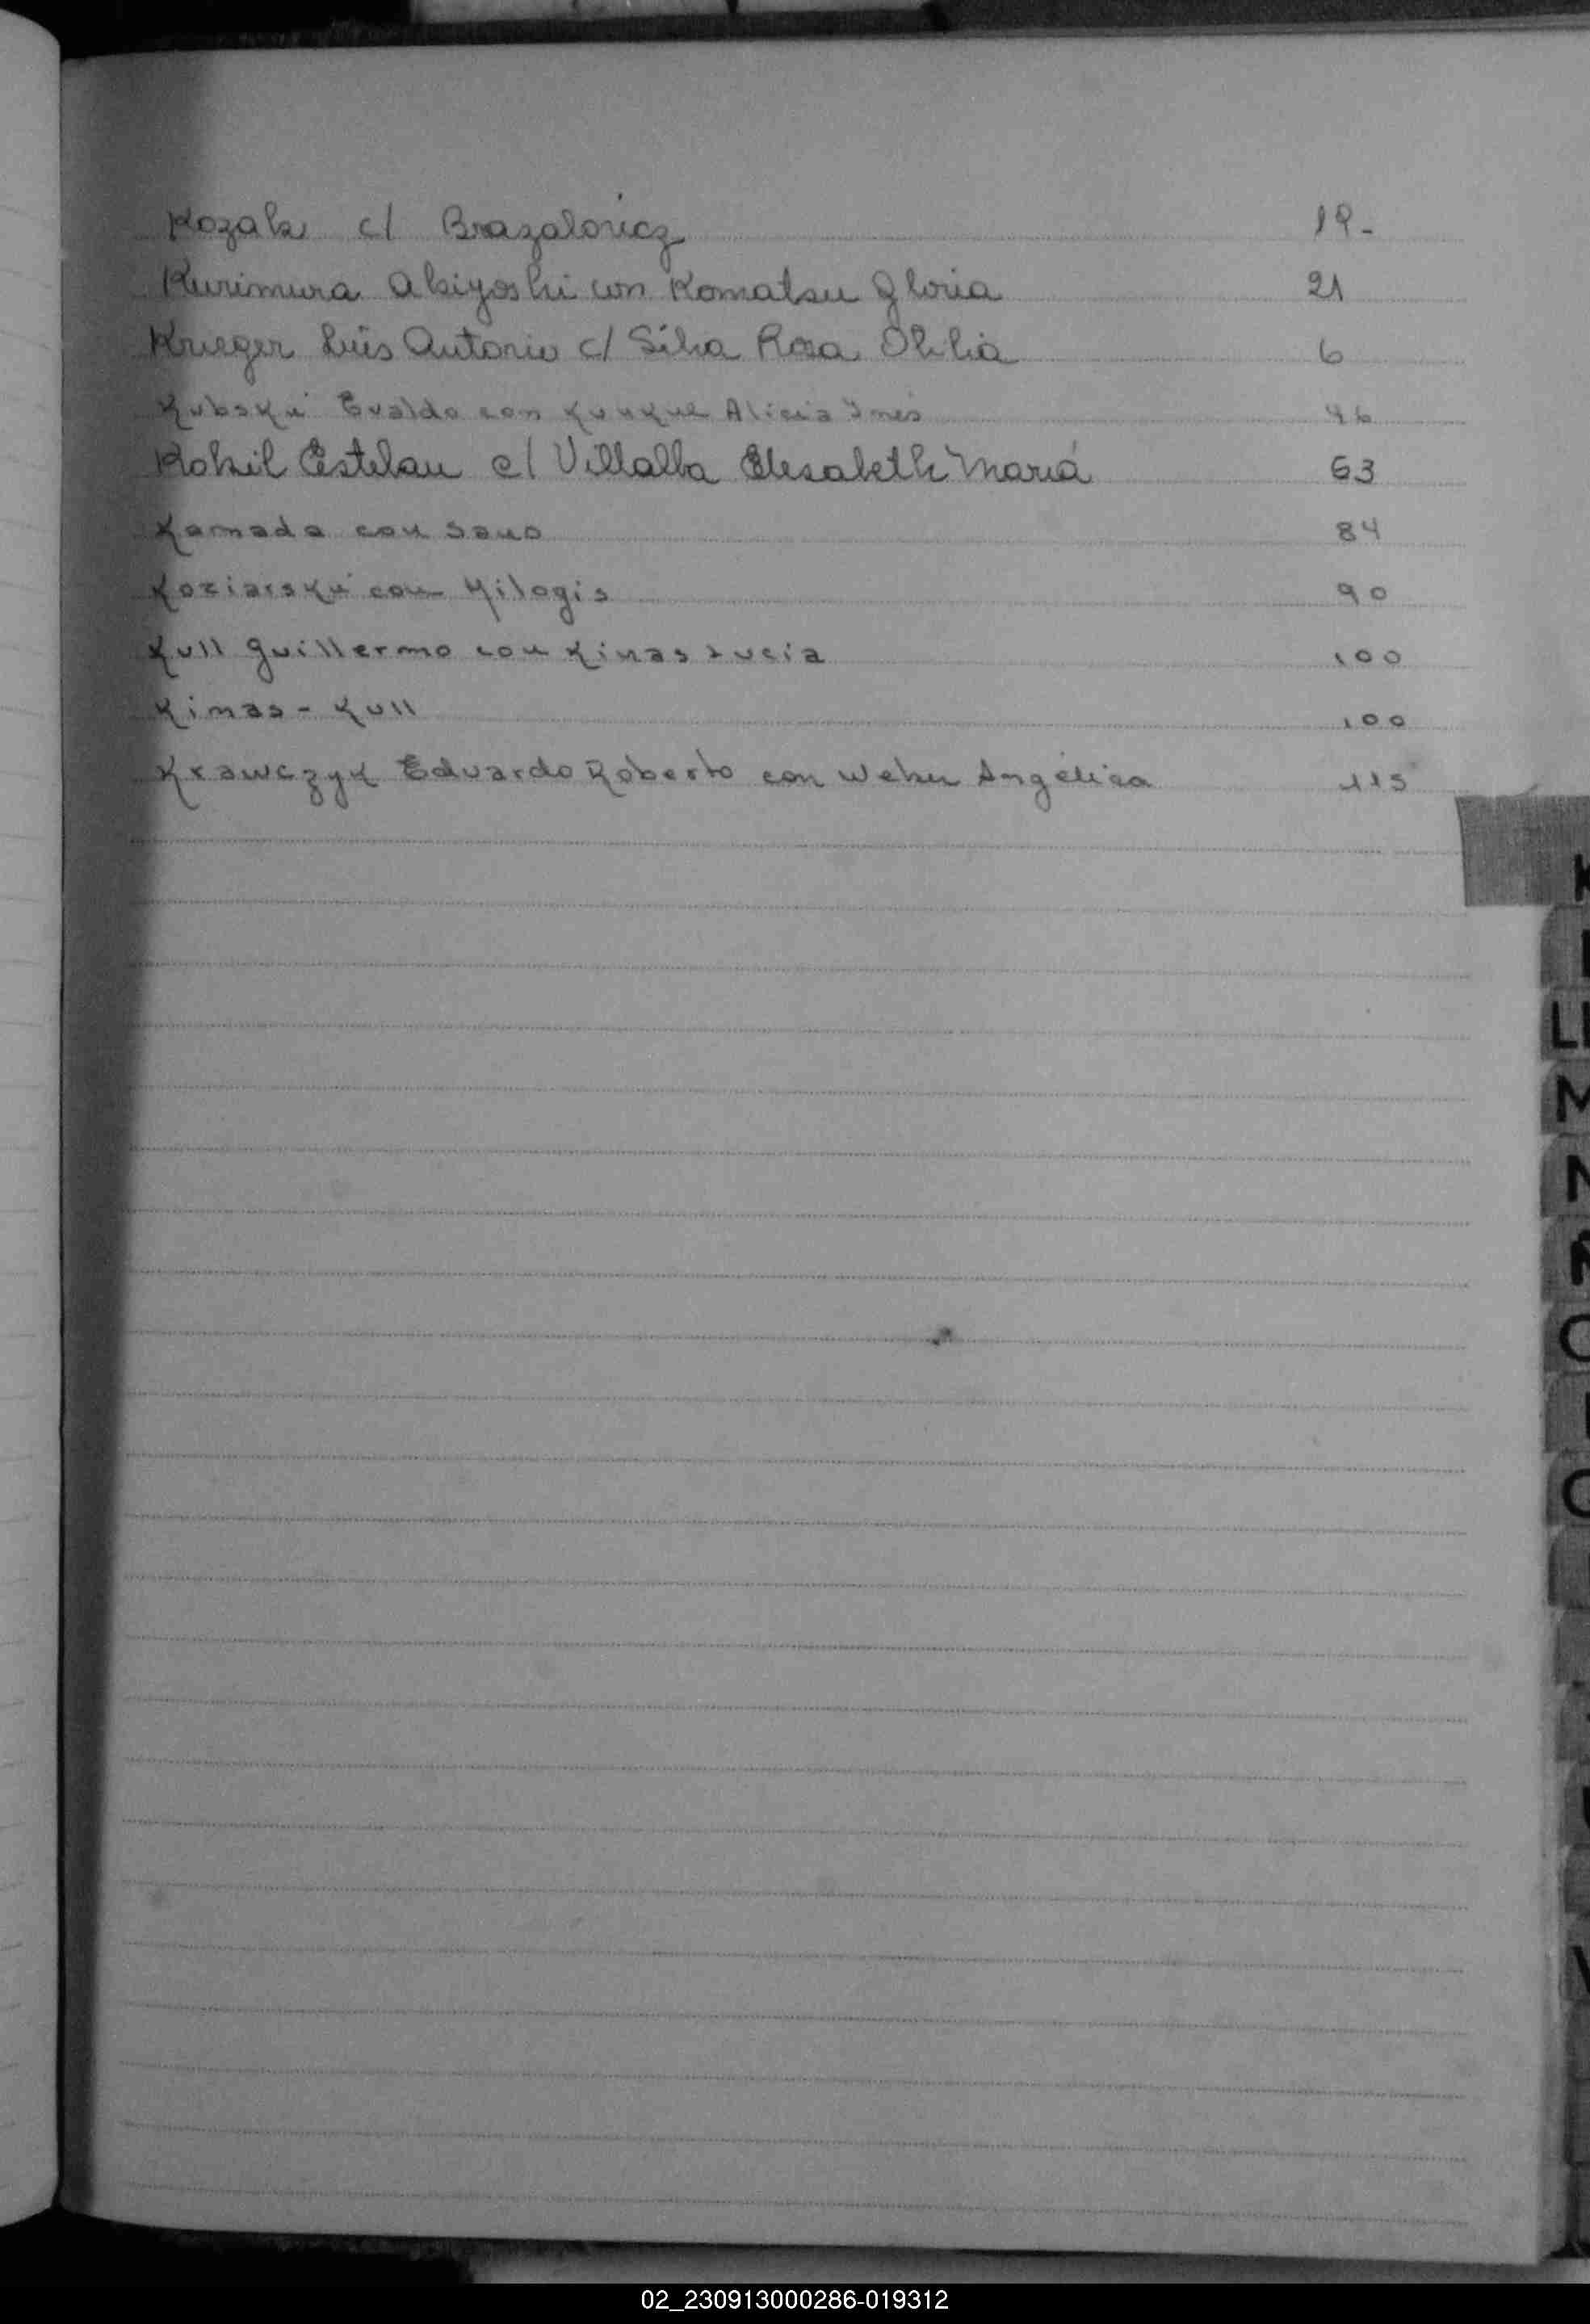 Kozak c/ Brazalovicz 19-
Kurimura Akiyoshi con Komatsu Gloria 21
Krieger Luis Antonio c/ Silva Rosa Otilia 6
Kubski Evaldo con Alicia Ines 46
Kokil Esteban c/ Villalba Elesabeth María 63
Kamada con Sano 84
Koziarski con Milogis 90
Kull Guillermo con Kinas Lucia 100
Kinas - Kull 100
Krawczyk Eduardo Roberto con Weber Angélica 115
K
L
LL
M
N
Ñ
O
02_230913000286-019312